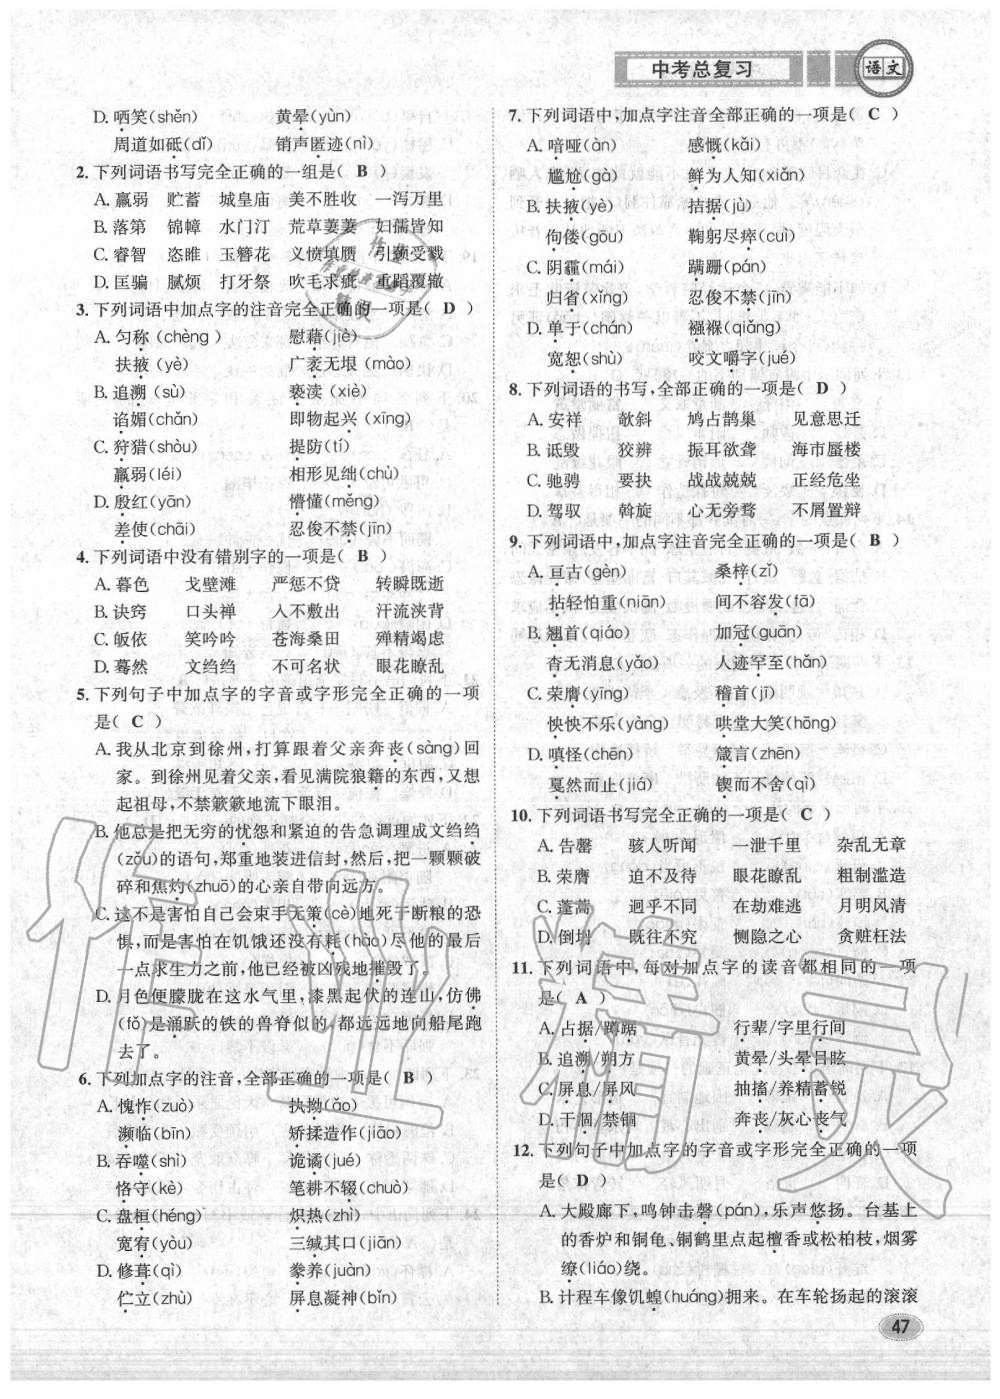 中考总复习 语文
D. 哂笑(shěn) 黄晕(yùn)
周道如砥(dǐ) 销声匿迹(nì)
2. 下列词语书写完全正确的一组是( B )
A. 赢弱 贮蓄 城皇庙 美不胜收 一泻万里
B. 落第 锦幛 水门汀 荒草萋萋 妇孺皆知
C. 睿智 恣睢 玉簪花 义愤填膺 引颈受戮
D. 匡骗 腻烦 打牙祭 吹毛求疵 重蹈覆辙
3. 下列词语中加点字的注音完全正确的一项是( D )
A. 匀称(chèng) 慰藉(jiè)
扶掖(yè) 广袤无垠(mào)
B. 追溯(sù) 亵渎(xiè)
谄媚(chǎn) 即物起兴(xīng)
C. 狩猎(shòu) 提防(tí)
羸弱(léi) 相形见绌(chù)
D. 殷红(yān) 懵懂(měng)
差使(chāi) 忍俊不禁(jīn)
4. 下列词语中没有错别字的一项是( B )
A. 暮色 戈壁滩 严惩不贷 转瞬既逝
B. 诀窍 口头禅 人不敷出 汗流浃背
C. 皈依 笑吟吟 苍海桑田 殚精竭虑
D. 蓦然 文绉绉 不可名状 眼花瞭乱
5. 下列句子中加点字的字音或字形完全正确的一项
是( C )
A. 我从北京到徐州,打算跟着父亲奔丧(sàng)回
家。到徐州见着父亲,看见满院狼籍的东西,又想
起祖母,不禁簌簌地流下眼泪。
B. 他总是把无穷的忧怨和紧迫的告急调理成文绉绉
(zǒu)的语句,郑重地装进信封,然后,把一颗颗破
碎和焦灼(zhuō)的心亲自带向远方。
C. 这不是害怕自己会束手无策(cè)地死于断粮的恐
惧,而是害怕在饥饿还没有耗(hào)尽他的最后
一点求生力之前,他已经被凶残地摧毁了。
D. 月色便朦胧在这水气里,漆黑起伏的连山,仿佛
(fǒ)是涌跃的铁的兽脊似的,都远远地向船尾跑
去了。
6. 下列加点字的注音,全部正确的一项是( B )
A. 愧怍(zuò) 执拗(ǎo)
濒临(bīn) 矫揉造作(jiāo)
B. 吞噬(shì) 诡谲(jué)
恪守(kè) 笔耕不辍(chuò)
C. 盘桓(héng) 炽热(zhì)
宽宥(yòu) 三缄其口(jiān)
D. 修葺(qì) 豢养(juàn)
伫立(zhù) 屏息凝神(bǐn)
7. 下列词语中,加点字注音全部正确的一项是( C )
A. 喑哑(àn) 感慨(kǎi)
尴尬(gà) 鲜为人知(xiǎn)
B. 扶掖(yè) 拮据(jù)
佝偻(gōu) 鞠躬尽瘁(cuì)
C. 阴霾(mái) 蹒跚(pán)
归省(xǐng) 忍俊不禁(jīn)
D. 单于(chán) 襁褓(qiǎng)
宽恕(shù) 咬文嚼字(jué)
8. 下列词语的书写,全部正确的一项是( D )
A. 安祥 欹斜 鸠占鹊巢 见意思迁
B. 诋毁 狡辨 振耳欲聋 海市蜃楼
C. 驰骋 要决 战战兢兢 正经危坐
D. 驾驭 斡旋 心无旁骛 不屑置辩
9. 下列词语中,加点字注音完全正确的一项是( B )
A. 亘古(gèn) 桑梓(zǐ)
拈轻怕重(niān) 间不容发(fā)
B. 翘首(qiáo) 加冠(guān)
杳无消息(yǎo) 人迹罕至(hǎn)
C. 荣膺(yīng) 稽首(jī)
怏怏不乐(yàng) 哄堂大笑(hōng)
D. 嗔怪(chēn) 箴言(zhēn)
戛然而止(jiá) 锲而不舍(qì)
10. 下列词语书写完全正确的一项是( C )
A. 告罄 骇人听闻 一泄千里 杂乱无章
B. 荣膺 迫不及待 眼花瞭乱 粗制滥造
C. 蓬蒿 迥乎不同 在劫难逃 月明风清
D. 倒塌 既往不究 恻隐之心 贪赃枉法
11. 下列词语中,每对加点字的读音都相同的一项
是( A )
A. 占据/踯躅 行辈/字里行间
B. 追溯/朔方 黄晕/头晕目眩
C. 屏息/屏风 抽搐/养精蓄锐
D. 干涸/禁锢 奔丧/灰心丧气
12. 下列句子中加点字的字音或字形完全正确的一项
是( D )
A. 大殿廊下,鸣钟击磬(pán),乐声悠扬。台基上
的香炉和铜龟、铜鹤里点起檀香或松柏枝,烟雾
缭(liáo)绕。
B. 计程车像饥蝗(huáng)拥来。在车轮扬起的滚滚
47
作业精灵